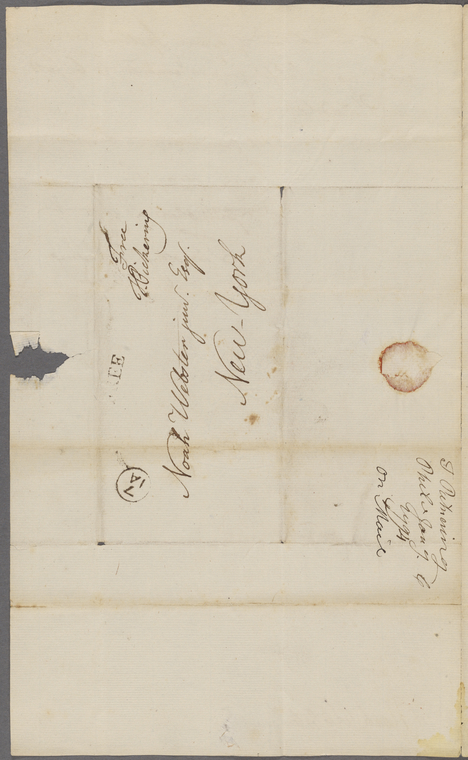 Free
T. Pickering
Noah Webster junr. Esqr.
New-York
T Pickering
Phila Jany. 6
1794
on